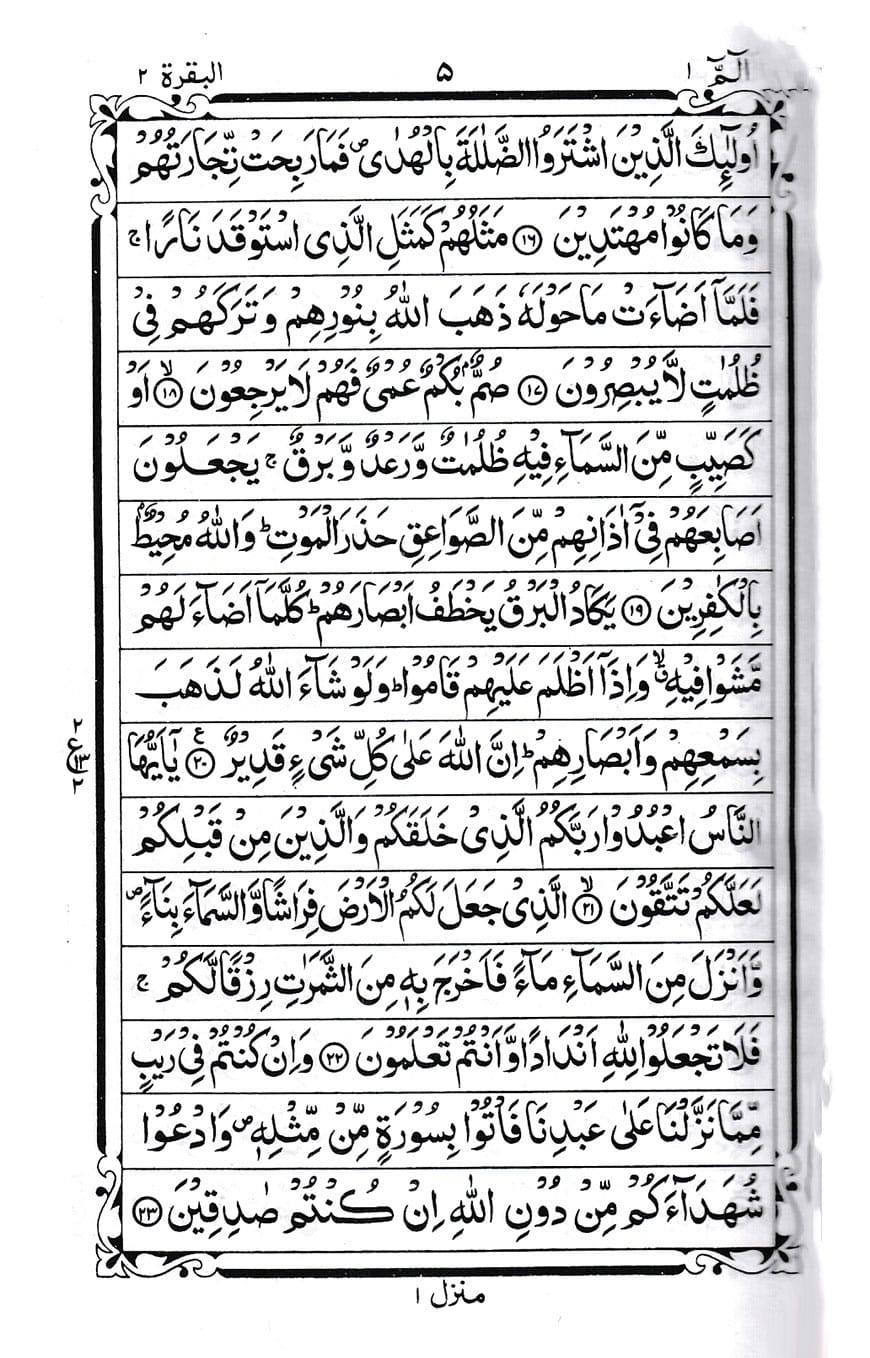 الٓمّٓ ١ ٥ البقرة ٢
اُولٰٓئِكَ الَّذِيْنَ اشْتَرَوُا الضَّلٰلَةَ بِالْهُدٰى ۪ فَمَا رَبِحَتْ تِّجَارَتُهُمْ
وَمَا كَانُوْا مُهْتَدِيْنَ ۝۱۶ مَثَلُهُمْ كَمَثَلِ الَّذِى اسْتَوْقَدَ نَارًا ۚ
فَلَمَّآ اَضَآءَتْ مَا حَوْلَهٗ ذَهَبَ اللّٰهُ بِنُوْرِهِمْ وَتَرَكَهُمْ فِىْ
ظُلُمٰتٍ لَّا يُبْصِرُوْنَ ۝۱۷ صُمٌّۢ بُكْمٌ عُمْىٌ فَهُمْ لَا يَرْجِعُوْنَ ۝۱۸ۙ اَوْ
كَصَيِّبٍ مِّنَ السَّمَآءِ فِيْهِ ظُلُمٰتٌ وَّرَعْدٌ وَّبَرْقٌ ۚ يَجْعَلُوْنَ
اَصَابِعَهُمْ فِىْٓ اٰذَانِهِمْ مِّنَ الصَّوَاعِقِ حَذَرَ الْمَوْتِ ؕ وَاللّٰهُ مُحِيْطٌۢ
بِالْكٰفِرِيْنَ ۝۱۹ يَكَادُ الْبَرْقُ يَخْطَفُ اَبْصَارَهُمْ ؕ كُلَّمَآ اَضَآءَ لَهُمْ
مَّشَوْا فِيْهِ ۙ وَاِذَآ اَظْلَمَ عَلَيْهِمْ قَامُوْا ؕ وَلَوْ شَآءَ اللّٰهُ لَذَهَبَ
بِسَمْعِهِمْ وَاَبْصَارِهِمْ ؕ اِنَّ اللّٰهَ عَلٰى كُلِّ شَىْءٍ قَدِيْرٌ ۝۲۰ع يٰٓاَيُّهَا
٢ ع ١٣ ٢
النَّاسُ اعْبُدُوْا رَبَّكُمُ الَّذِىْ خَلَقَكُمْ وَالَّذِيْنَ مِنْ قَبْلِكُمْ
لَعَلَّكُمْ تَتَّقُوْنَ ۝۲۱ۙ الَّذِىْ جَعَلَ لَكُمُ الْاَرْضَ فِرَاشًا وَّالسَّمَآءَ بِنَآءً ۪
وَّاَنْزَلَ مِنَ السَّمَآءِ مَآءً فَاَخْرَجَ بِهٖ مِنَ الثَّمَرٰتِ رِزْقًا لَّكُمْ ۚ
فَلَا تَجْعَلُوْا لِلّٰهِ اَنْدَادًا وَّاَنْتُمْ تَعْلَمُوْنَ ۝۲۲ وَاِنْ كُنْتُمْ فِىْ رَيْبٍ
مِّمَّا نَزَّلْنَا عَلٰى عَبْدِنَا فَاْتُوْا بِسُوْرَةٍ مِّنْ مِّثْلِهٖ ۪ وَادْعُوْا
شُهَدَآءَكُمْ مِّنْ دُوْنِ اللّٰهِ اِنْ كُنْتُمْ صٰدِقِيْنَ ۝۲۳
منزل ١